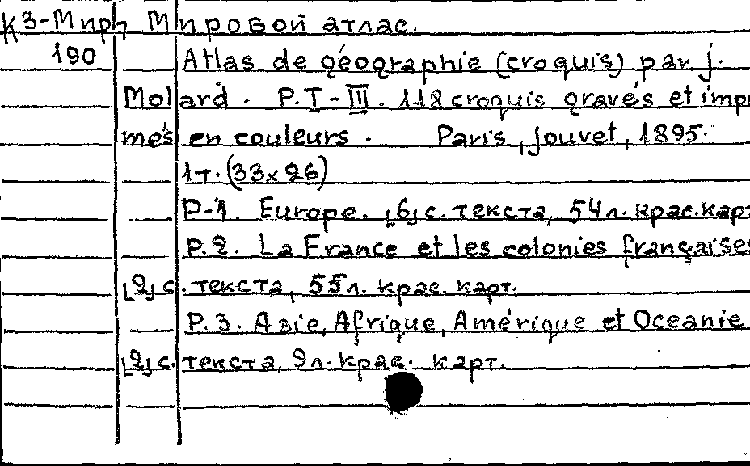 К3-Мирh Мировой атлас.
190 Atlas de géographie (croquis) par J.
Molard. P.I-III. 118 croquis gravés et impri
més en couleurs. Paris, Jouvet, 1895.
1т. (33x26)
P-1. Europe. [6] с. текста, 54 л. крас. карт
P.2. La France et les colonies françaises
[2] с. текста, 55 л. крас. карт.
P.3. Asie, Afrique, Amérique et Oceanie
[2] с. текста, 9 л. крас. карт.